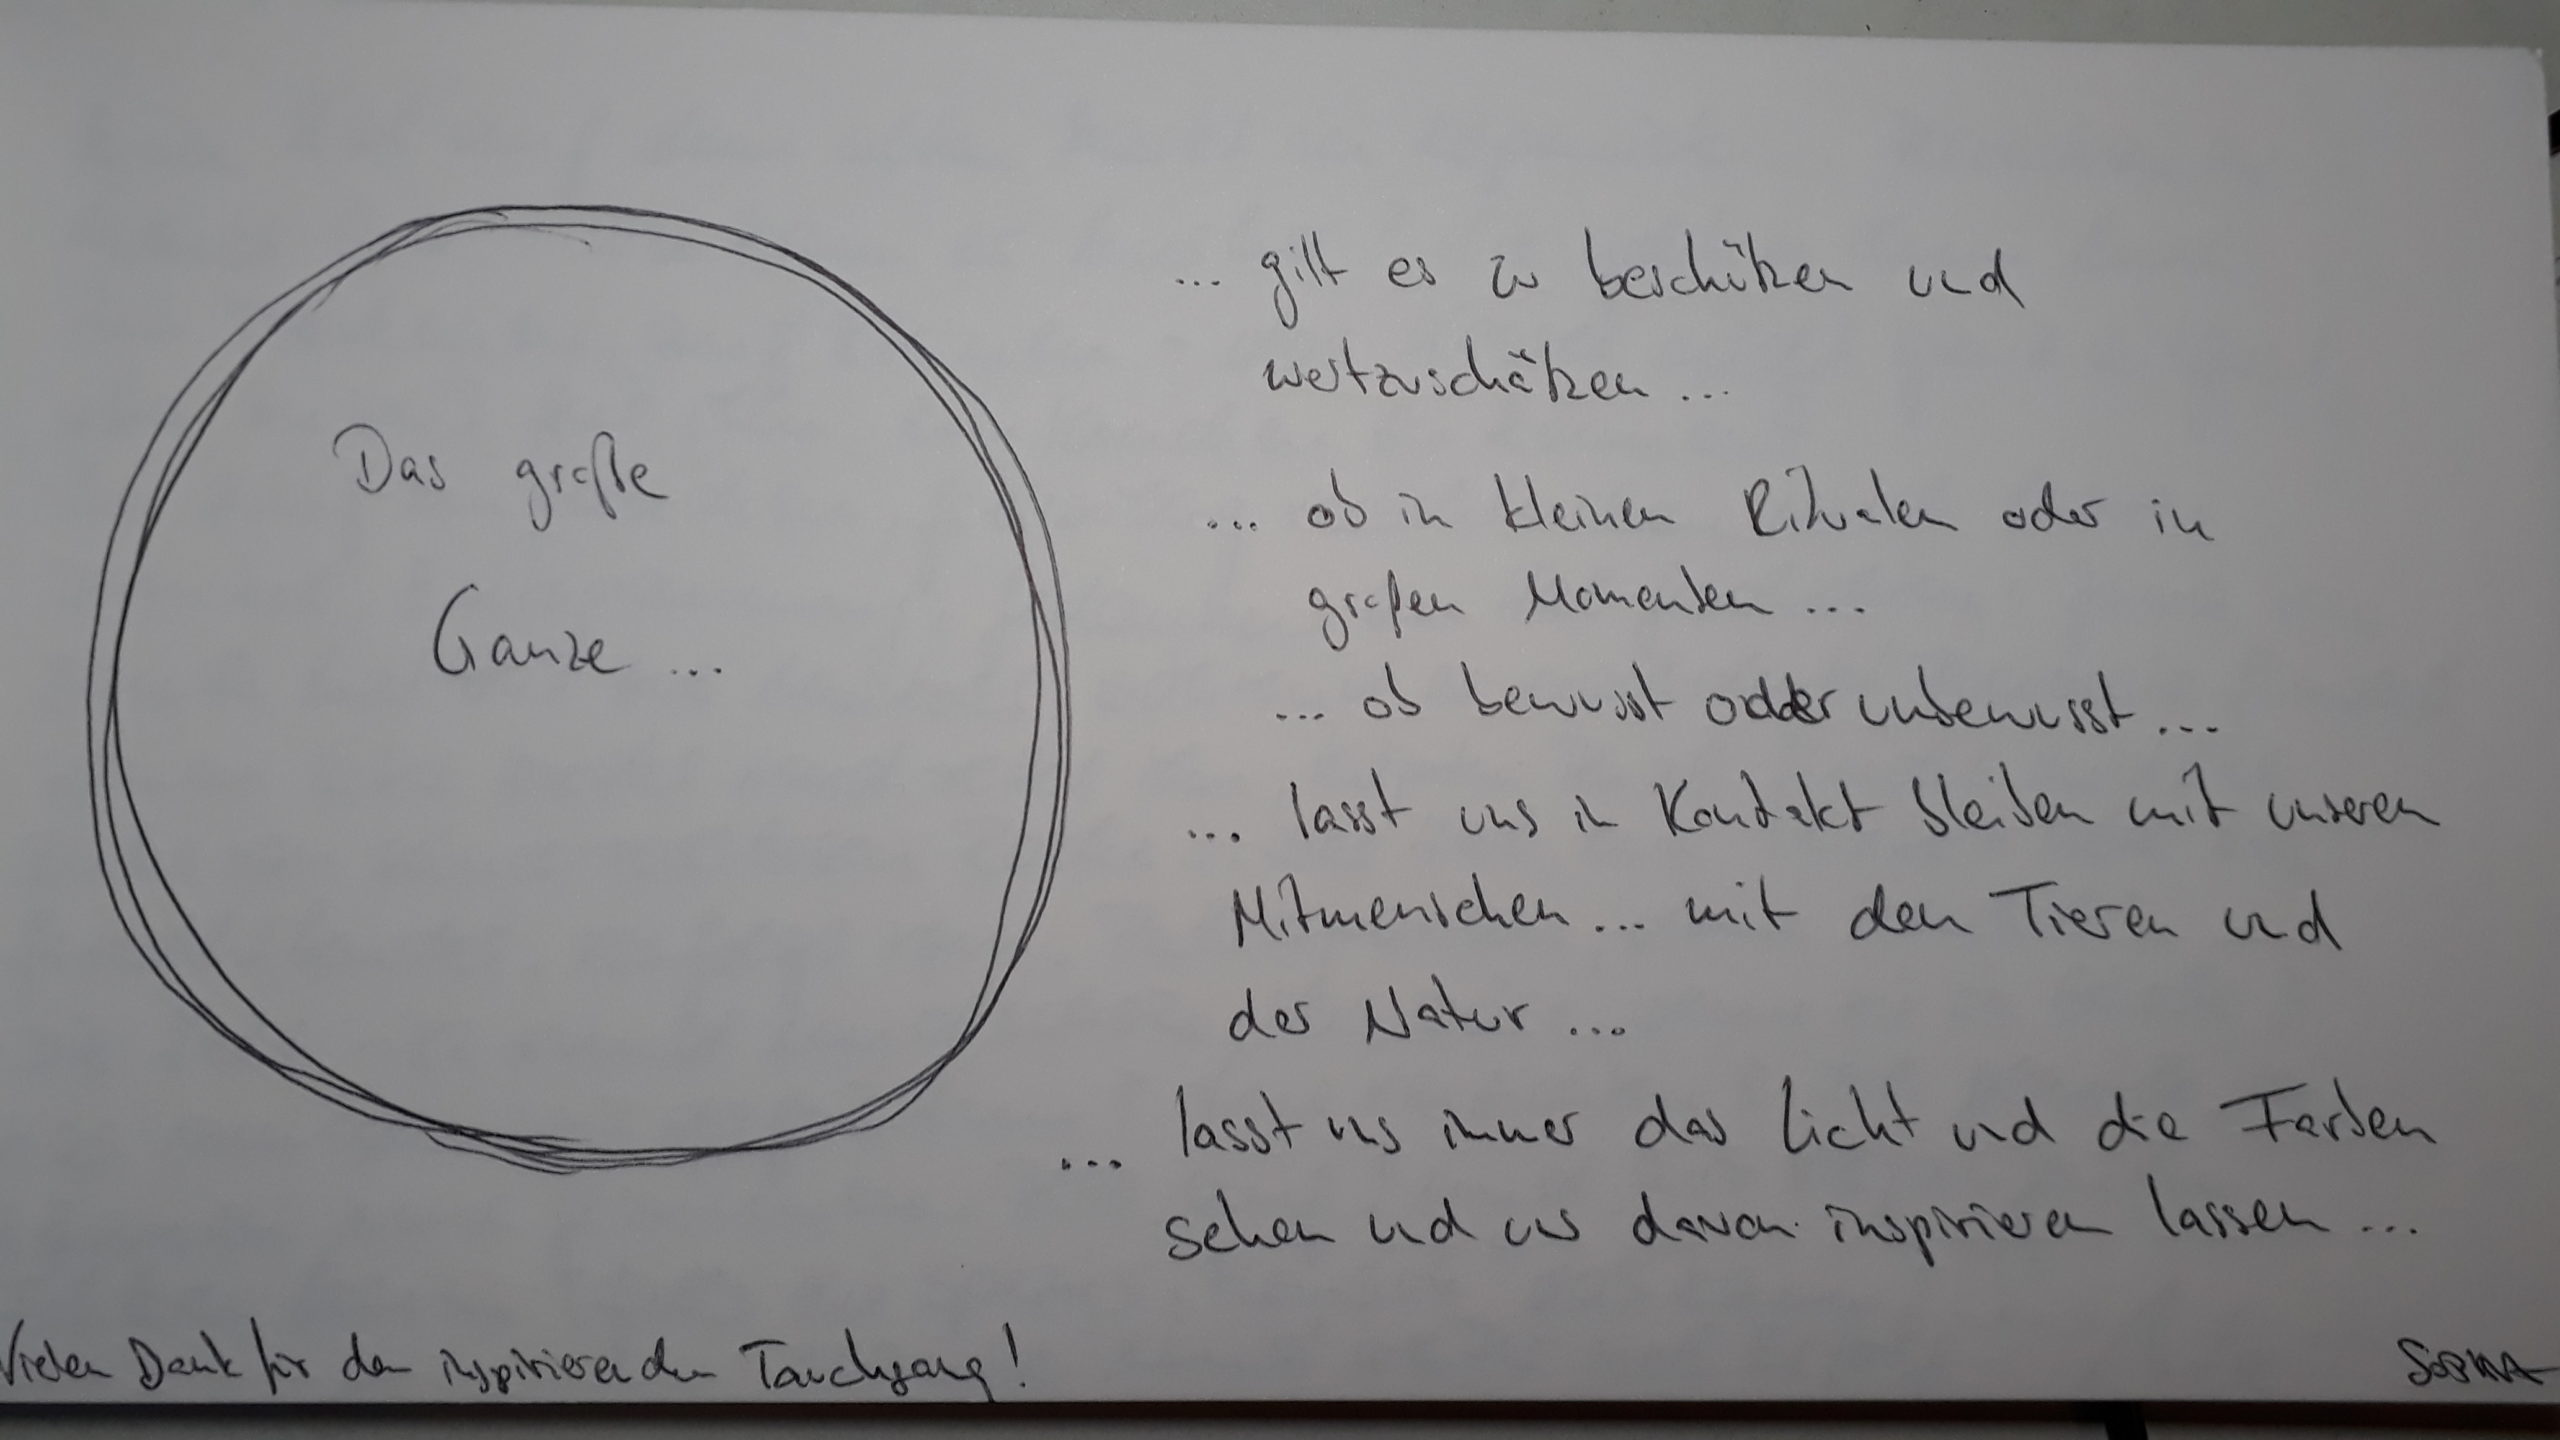 Das große
Ganze ...
... gilt es zu beschützen und
wertzuschätzen ...
... ob in kleinen Ritualen oder in
großen Momenten ...
... ob bewusst odder unbewusst ...
... lasst uns in Kontakt bleiben mit unseren
Mitmenschen ... mit den Tieren und
der Natur ...
... lasst uns immer das Licht und die Farben
sehen und uns davon inspirieren lassen ...
Vielen Dank für den inspirierenden Tauchgang!